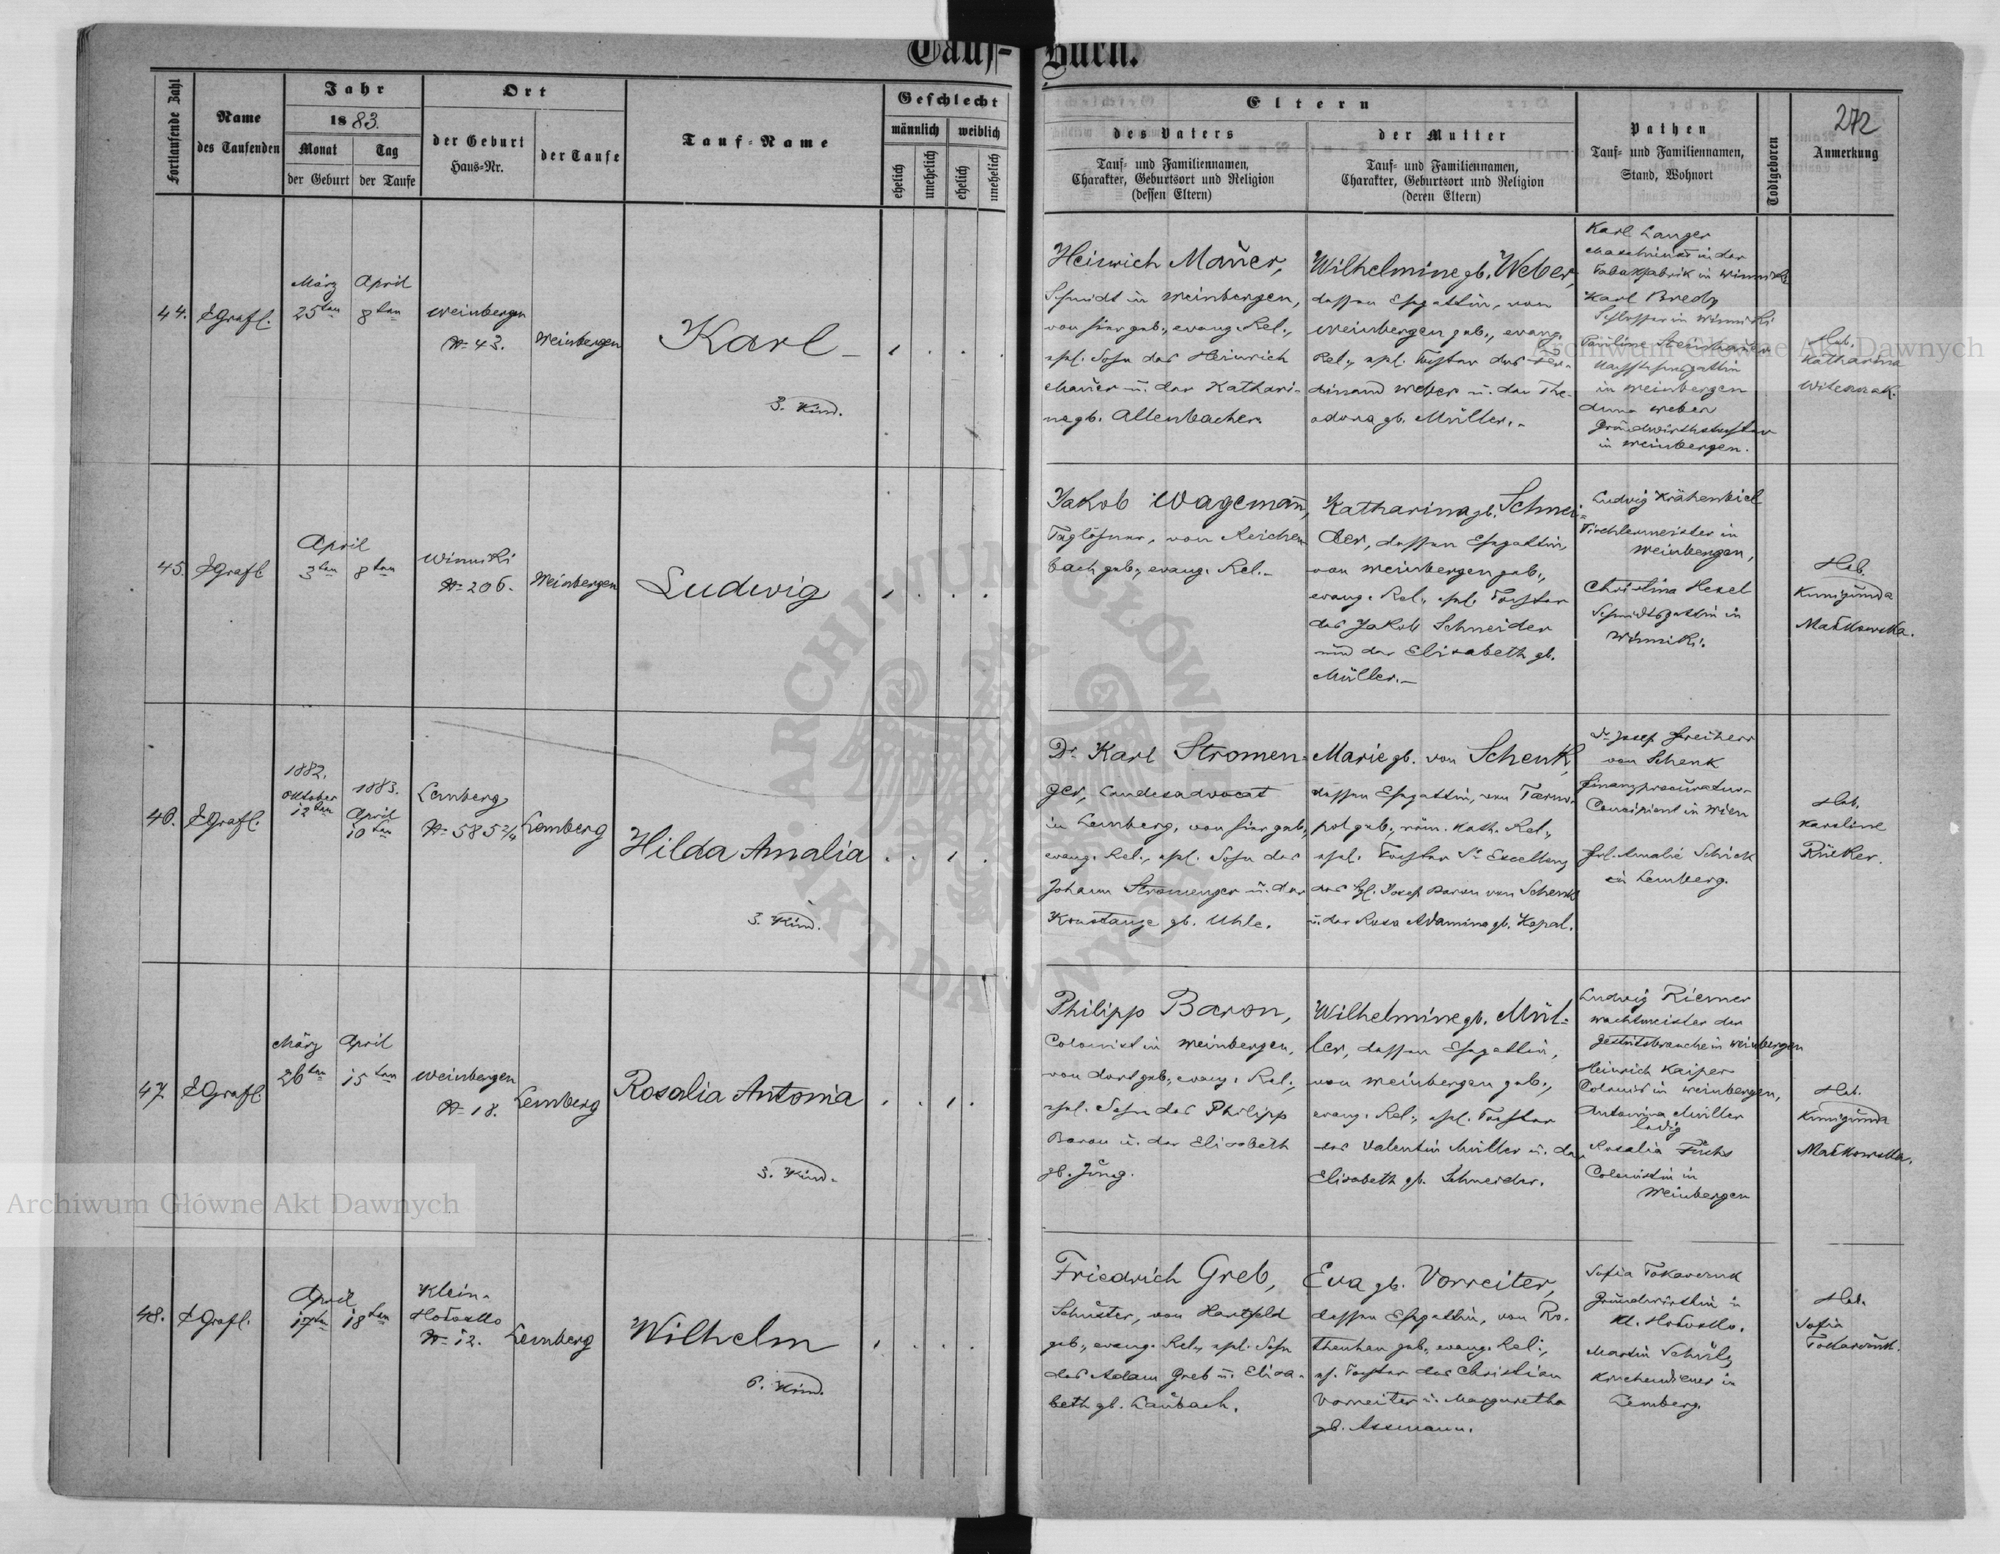 Tauf-Buch.
272
Fortlaufende Zahl
Name
des Taufenden
Jahr
1883.
Monat
Tag
der Geburt
der Taufe
Ort
der Geburt
Haus-Nr.
der Taufe
Tauf-Name
Geschlecht
männlich
weiblich
ehelich
unehelich
ehelich
unehelich
Eltern
des Vaters
Tauf- und Familiennamen,
Charakter, Geburtsort und Religion
(dessen Eltern)
der Mutter
Tauf- und Familiennamen,
Charakter, Geburtsort und Religion
(deren Eltern)
Pathen
Tauf- und Familiennamen,
Stand, Wohnort
Todtgeboren
Anmerkung
44.
EGrafl.
März
25ten
April
8ten
Weinbergen
No 43.
Weinbergen
Karl
3. Kind.
Heinrich Mauer,
Schmidt in Weinbergen,
von hier geb., evang. Rel.,
ehl. Sohn des Heinrich
Mauer u. der Kathari-
na gb. Allenbacher.
Wilhelmine gb. Weber,
dessen Ehegattin, von
Weinbergen geb., evang.
Rel., ehl. Tochter des Fer-
dinand Weber u. der The-
odora gb. Müller.
Karl Langer
Maschinist in der
Tabakfabrik in Winniki
Karl Bredy
Schlosser in Winniki
Pauline Steinhauer
in Weinbergen
Anna Weber
Grundwirthstochter
in Weinbergen.
Heb.
Katharina
Witczak.
45.
EGrafl
April
3ten
8ten
Winniki
No 206.
Weinbergen
Ludwig
Jakob Wagemann,
Taglöhner, von Reichen
bach geb., evang. Rel.
Katharina gb. Schnei-
der, dessen Ehegattin,
von Weinbergen geb.,
evang. Rel., ehl. Tochter
des Jakob Schneider
und der Elisabeth gb.
Müller.
Ludwig Krähenbiel
Tischlermeister in
Weinbergen,
Christina Hexel
Schmidtsgattin in
Winniki.
Heb.
Kunigunda
Małkowska.
46.
EGrafl.
1882.
Oktober
12ten
1883.
April
10ten
Lemberg
No 585 2/4
Lemberg
Hilda Amalia
3. Kind.
Dr. Karl Stromen-
ger, Landesadvocat
in Lemberg, von hier geb.,
evang. Rel., ehl. Sohn des
Johann Stromenger u. der
Konstanze gb. Uhle.
Marie gb. von Schenk,
dessen Ehegattin, von Tarno-
pol geb., röm. kath. Rel.,
ehl. Tochter Sr Excellenz
des Hl. Josef Baron von Schenk
u. der Rosa Adamina gb. Kopal.
Dr Josef Freiherr
von Schenk
Finanzprocuratur-
Concipient in Wien
Frl. Amalie Schick
in Lemberg.
Heb.
Karoline
Rücker.
47.
EGrafl.
März
26ten
April
15ten
Weinbergen
No 18.
Lemberg
Rosalia Antonia
3. Kind.
Philipp Baron,
Colonist in Weinbergen,
von dort geb., evang. Rel.,
ehl. Sohn des Philipp
Baron u. der Elisabeth
gb. Jung.
Wilhelmine gb. Mül-
ler, dessen Ehegattin,
von Weinbergen geb.,
evang. Rel., ehl. Tochter
des Valentin Müller u. der
Elisabeth gb. Schneider.
Ludwig Riemer
Wachtmeister der
Gestütsbranche in Weinbergen
Heinrich Kaiper
Colonist in Weinbergen,
Antonina Müller
ledig
Rosalia Fuchs
Colonistin in
Weinbergen
Heb.
Kunigunda
Małkowska.
48.
EGrafl.
April
17ten
18ten
Klein-
Hołosko
No 12.
Lemberg
Wilhelm
6. Kind.
Friedrich Greb,
Schuster, von Hartfeld
geb., evang. Rel., ehl. Sohn
des Adam Greb u. Elisa-
beth gb. Laubach.
Eva gb. Vorreiter,
dessen Ehegattin, von Ro-
thenhan geb., evang. Rel.,
ehl. Tochter des Christian
Vorreiter u. Margaretha
gb. Assmann.
Sofia Tokarczuk
Grundwirthin in
Kl. Hołosko.
Martin Schulz
Kirchendiener in
Lemberg.
Heb.
Sofia
Tokarczuk.
Archiwum Główne Akt Dawnych
Archiwum Główne Akt Dawnych
ARCHIWUM GŁÓWNE AKT DAWNYCH